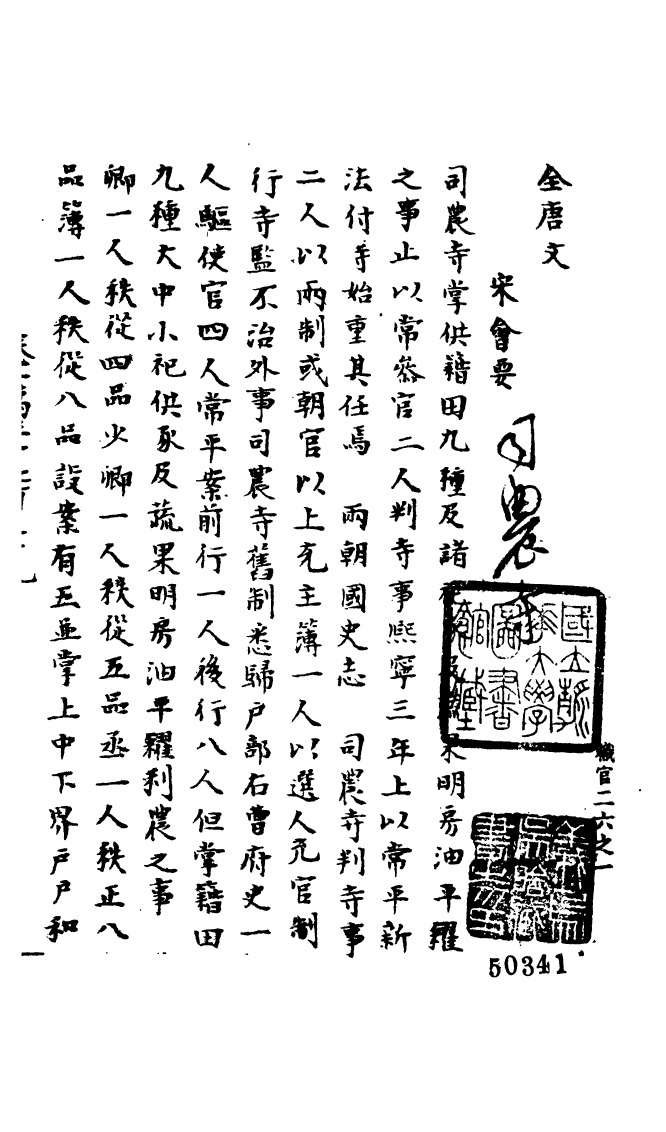 全唐文
宋會要
司農寺
職官二六之一
司農寺掌供籍田九種及諸 果明房油平糶
之事止以常叅官二人判寺事熙寧三年上以常平新
法付寺始重其任焉 兩朝國史志 司農寺判寺事
二人以兩制或朝官以上充主簿一人以選人充官制
行寺監不治外事司農寺舊制悉歸户部右曹府史一
人驅使官四人常平案前行一人後行八人但掌籍田
九種大中小祀供豕及蔬果明房油平糶利農之事
卿一人秩從四品少卿一人秩從五品丞一人秩正八
品簿一人秩從八品設案有五並掌上中下界户户和
國立 大學圖書館藏
50341